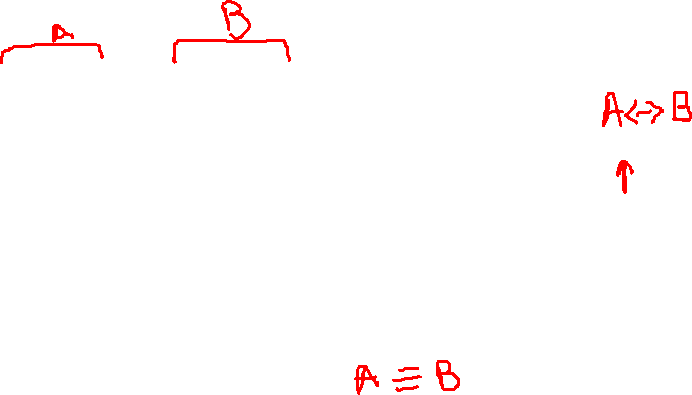 A B
A<->B
A ≡ B